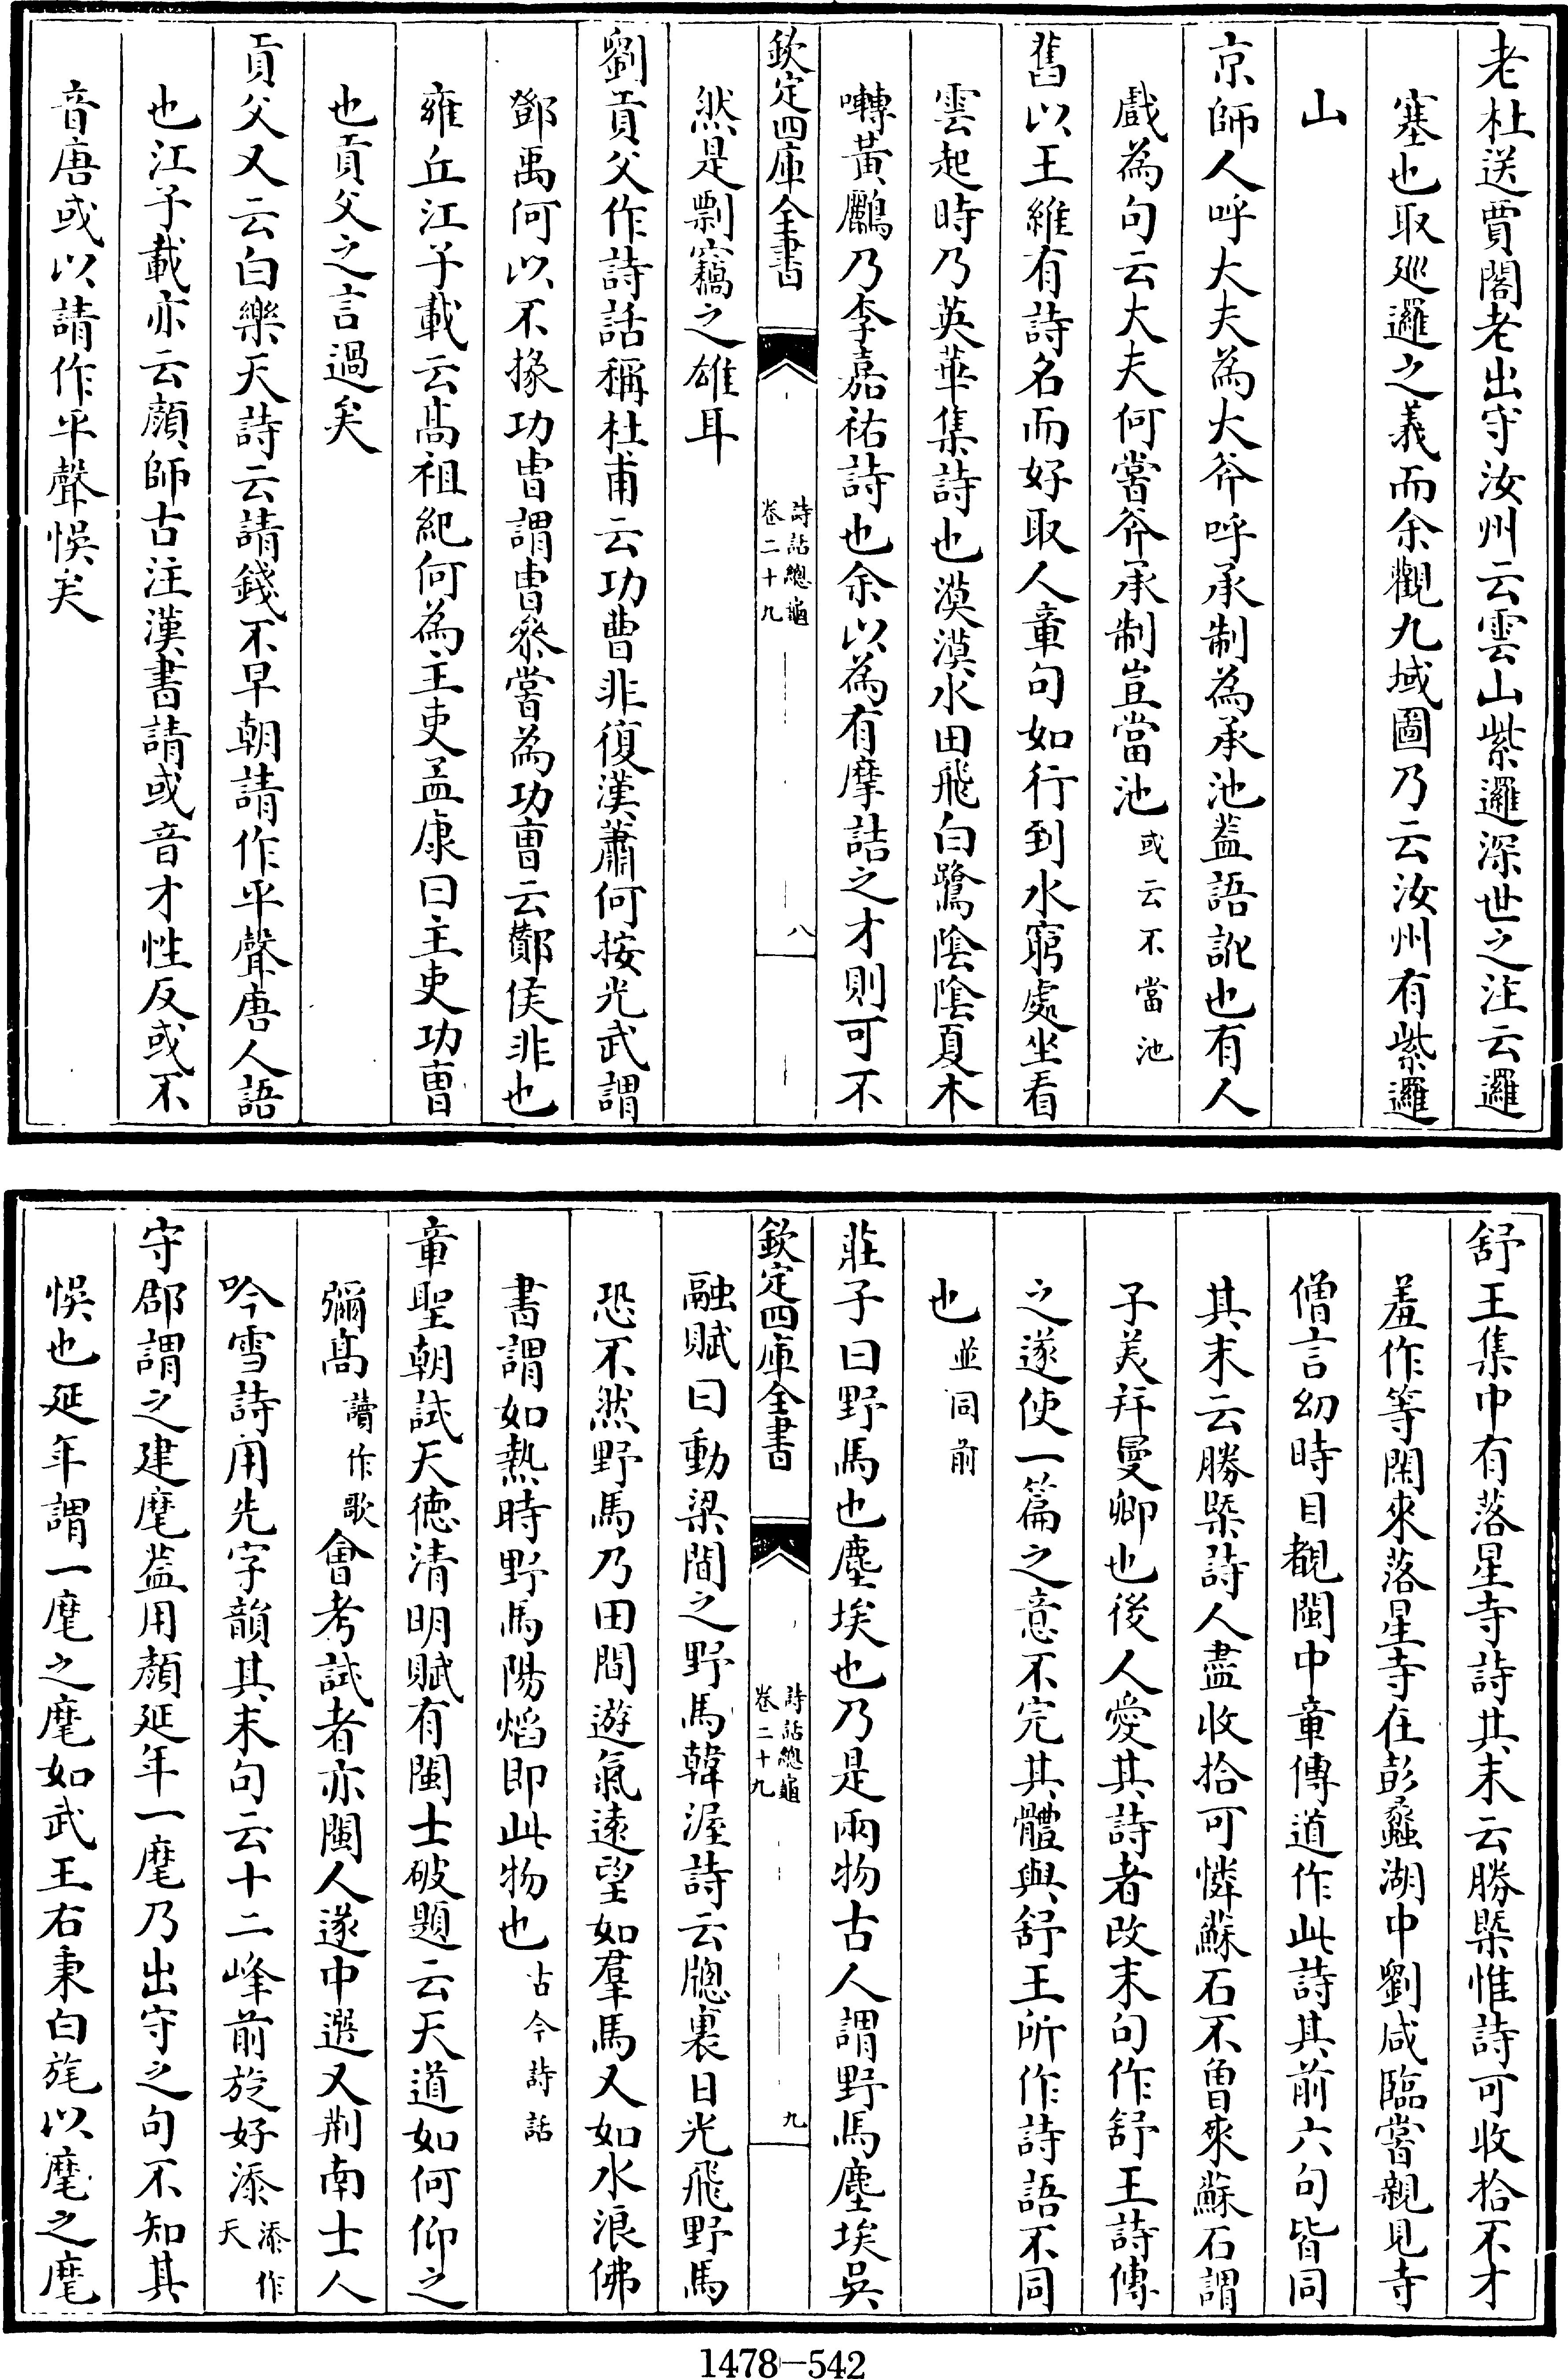 老杜送賈閣老出守汝州云雲山紫邏深世之注云邏
塞也取廵邏之義而余觀九域圖乃云汝州有紫邏
山
京師人呼大夫為大斧呼承制為承池葢語訛也有人
戲為句云大夫何嘗斧承制豈當池或云不當池
舊以王維有詩名而好取人章句如行到水窮處坐看
雲起時乃英華集詩也漠漠水田飛白鷺陰陰夏木
囀黃鸝乃李嘉祐詩也余以為有摩詰之才則可不
欽定四庫全書
詩話總龜
卷二十九
八
然是剽竊之雄耳
劉貢父作詩話稱杜甫云功曹非復漢蕭何按光武謂
鄧禹何以不掾功曹謂曹參嘗為功曹云酇侯非也
雍丘江子載云高祖紀何為主吏孟康曰主吏功曹
也貢父之言過矣
貢父又云白樂天詩云請錢不早朝請作平聲唐人語
也江子載亦云顔師古注漢書請或音才性反或不
音唐或以請作平聲悞矣
舒王集中有落星寺詩其末云勝槩惟詩可收拾不才
羞作等閑來落星寺在彭蠡湖中劉咸臨嘗親見寺
僧言幼時目覩閩中章傳道作此詩其前六句皆同
其末云勝槩詩人盡收拾可憐蘇石不曽來蘇石謂
子美拜曼卿也後人愛其詩者改末句作舒王詩傳
之遂使一篇之意不完其體與舒王所作詩語不同
也並同前
莊子曰野馬也塵埃也乃是兩物古人謂野馬塵埃吳
欽定四庫全書
詩話總龜
卷二十九
九
融賦曰動梁間之野馬韓渥詩云牎裏日光飛野馬
恐不然野馬乃田間遊氣遠望如羣馬又如水浪佛
書謂如熱時野馬陽焰即此物也古今詩話
章聖朝試天德清明賦有閩士破題云天道如何仰之
彌高讀作歌會考試者亦閩人遂中選又荆南士人
吟雪詩用先字韻其末句云十二峰前旋好添添作天
守郡謂之建麾葢用顔延年一麾乃出守之句不知其
悞也延年謂一麾之麾如武王右秉白旄以麾之麾
1478-542